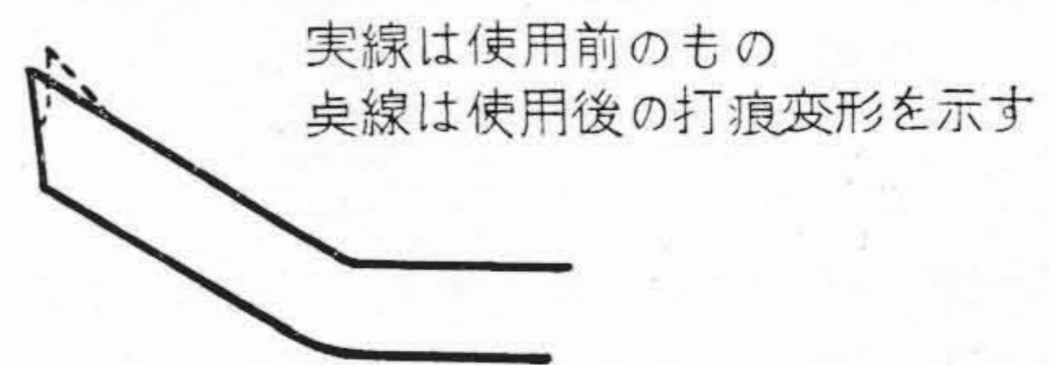 実線は使用前のもの
点線は使用後の打痕変形を示す